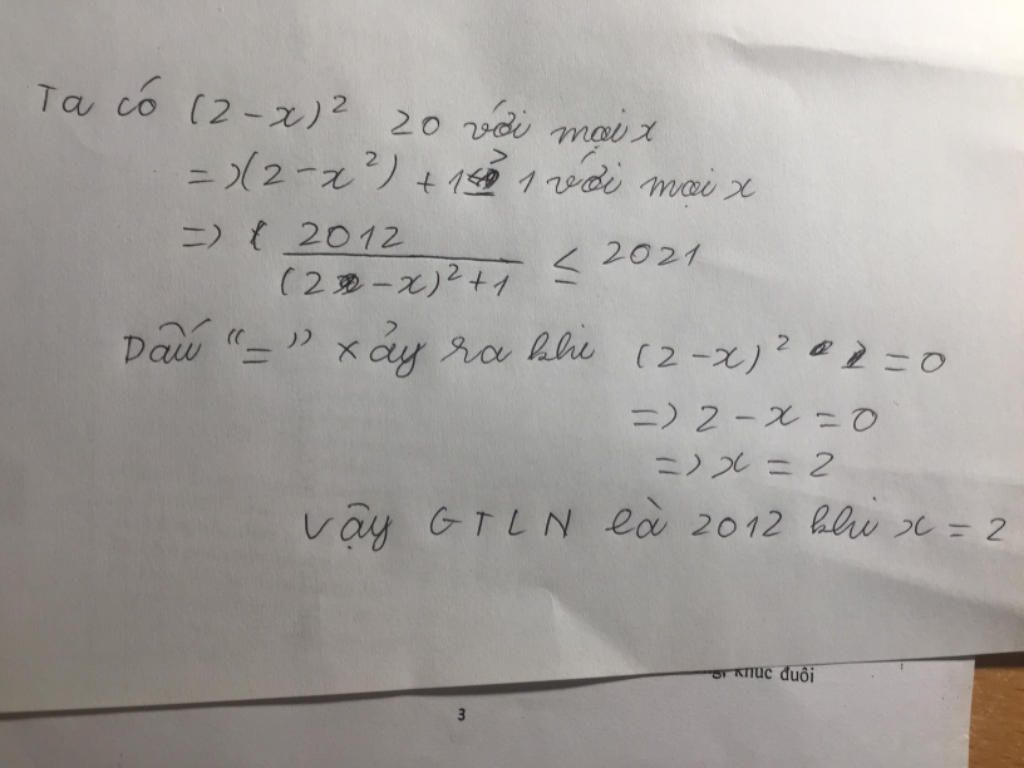 Ta có (2-x)² ≥0 với mọi x
=> (2-x²) + 1 ≥ 1 với mọi x
=> 2012/((2-x)²+1) ≤ 2021
Dấu "=" xảy ra khi (2-x)² = 0
=> 2-x = 0
=> x = 2
Vậy GTLN là 2012 khi x = 2
khúc đuôi
3